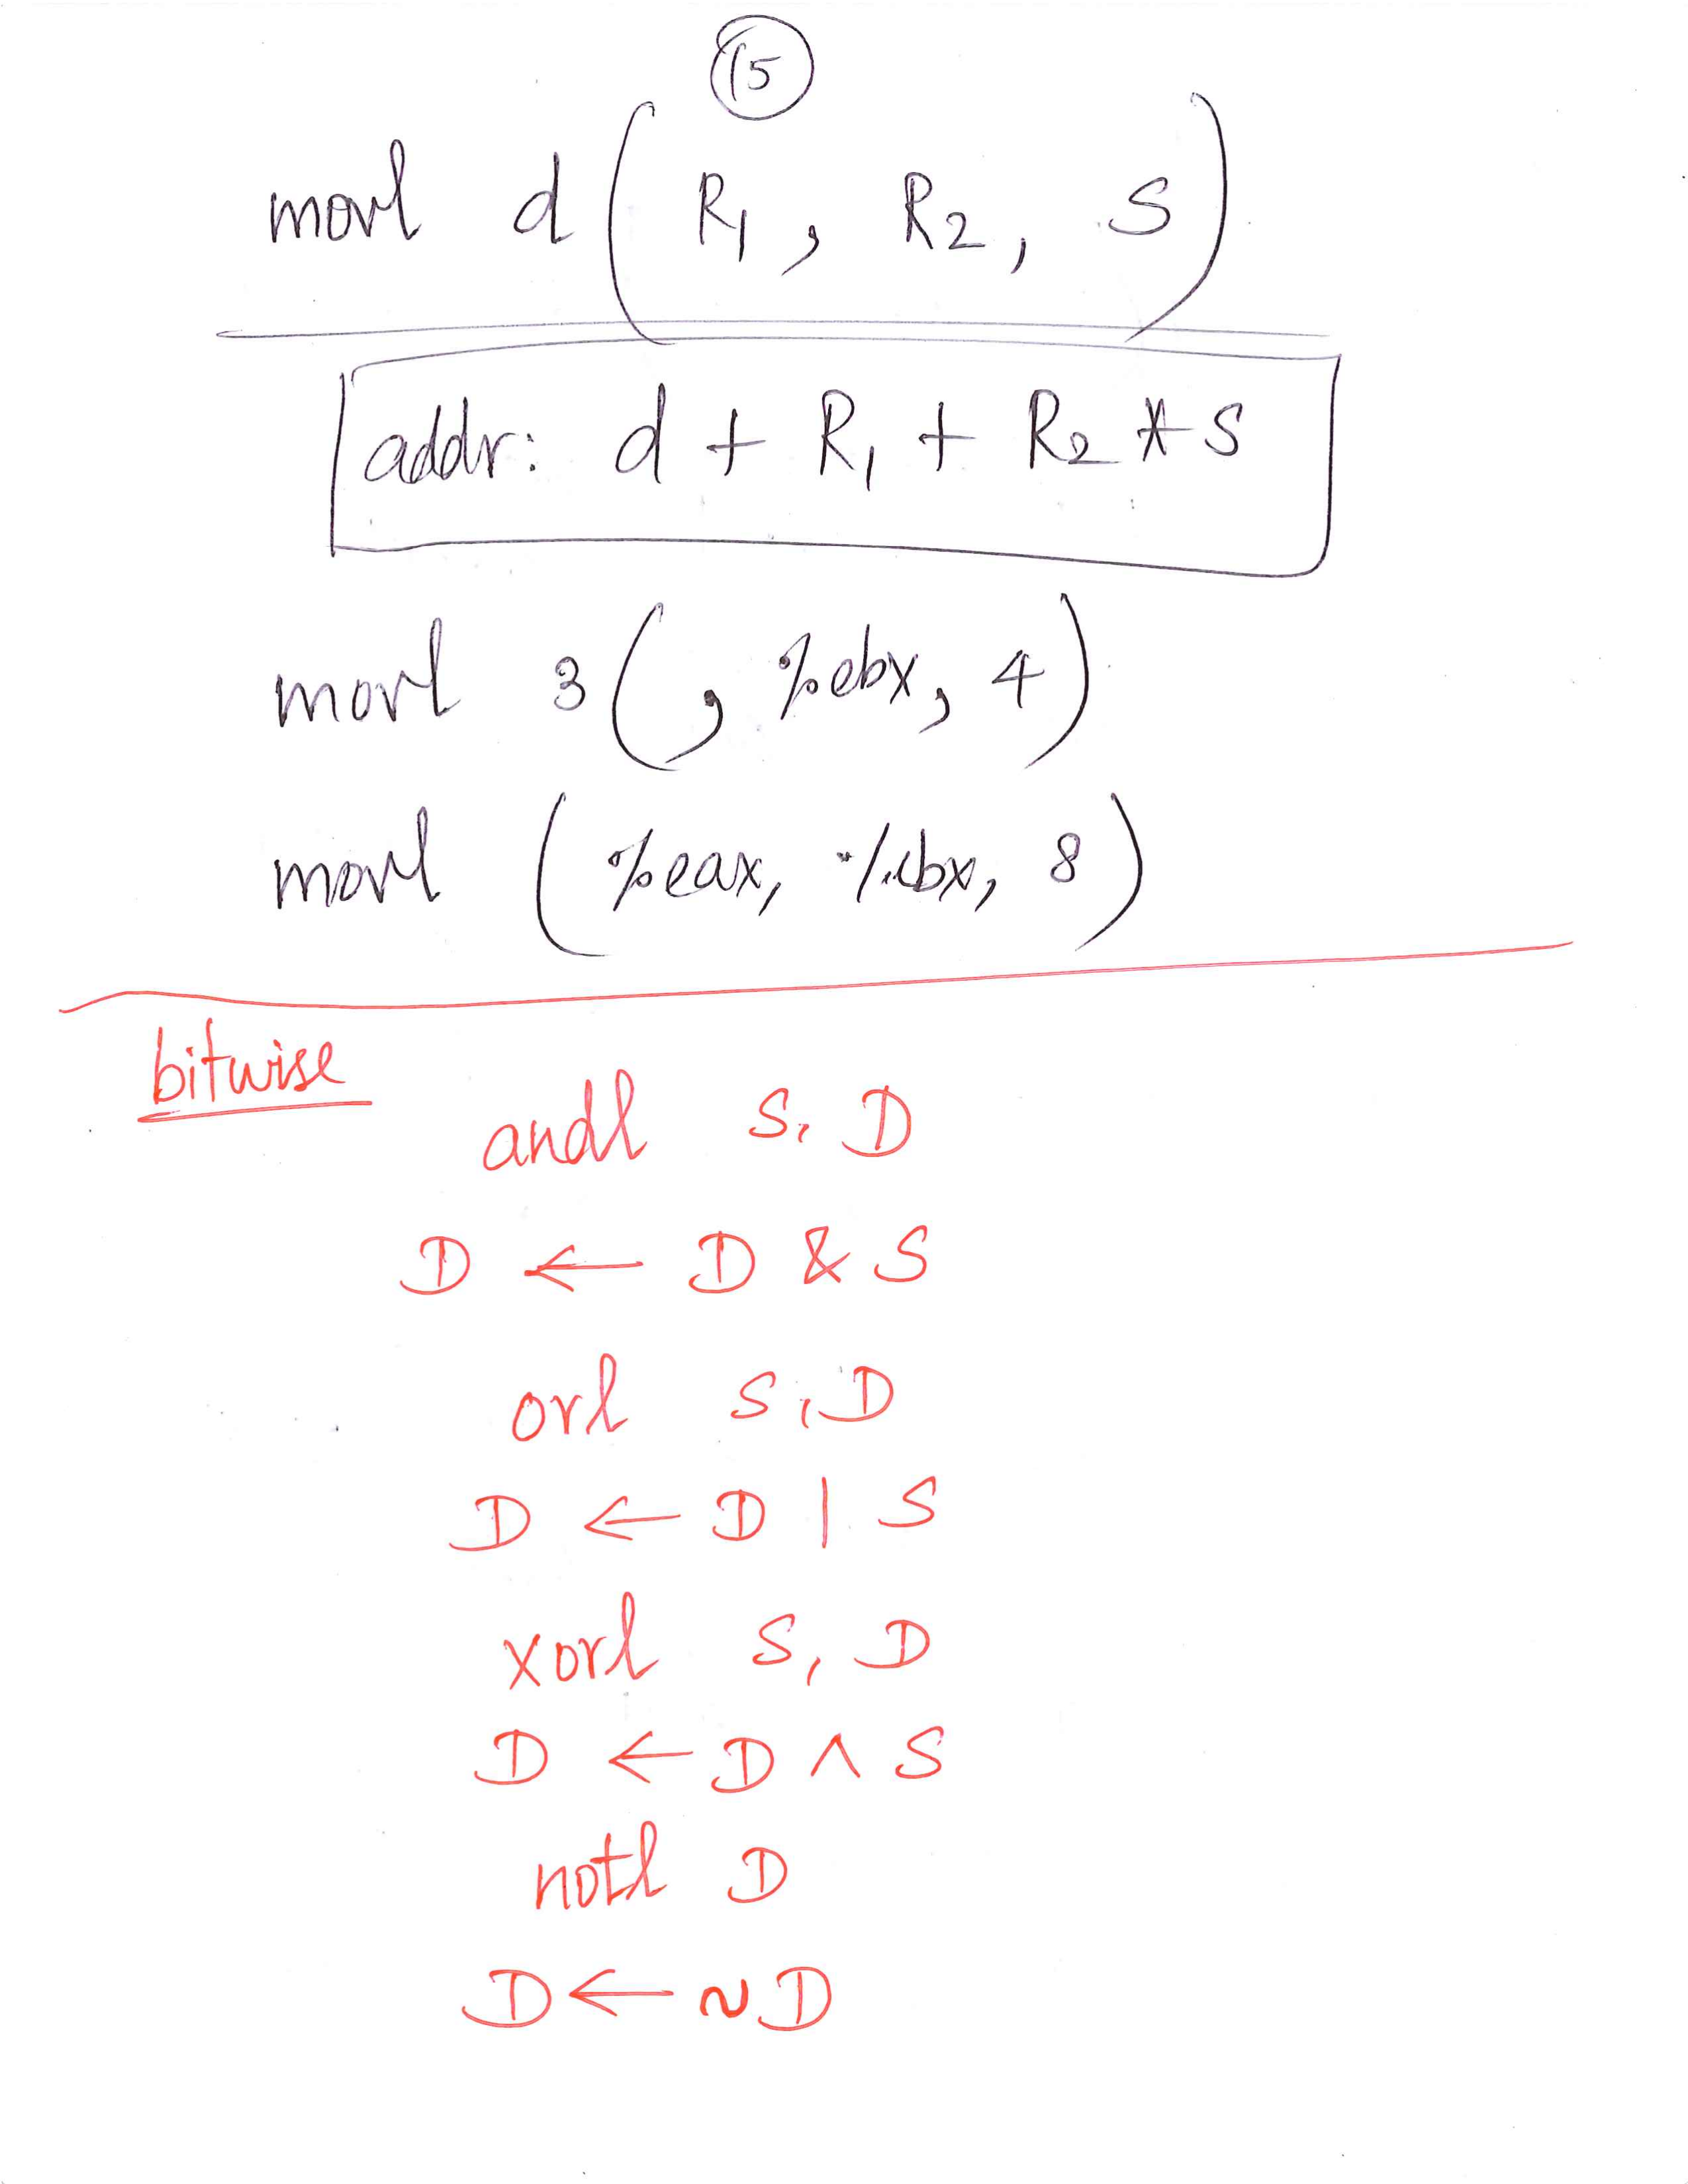 15
movl d ( R1, R2, S )
addr: d + R1 + R2 * S
movl 3 ( , %ebx, 4 )
movl ( %eax, %ebx, 8 )
bitwise
andl S, D
D ← D & S
orl S, D
D ← D | S
xorl S, D
D ← D ^ S
notl D
D ← ~D